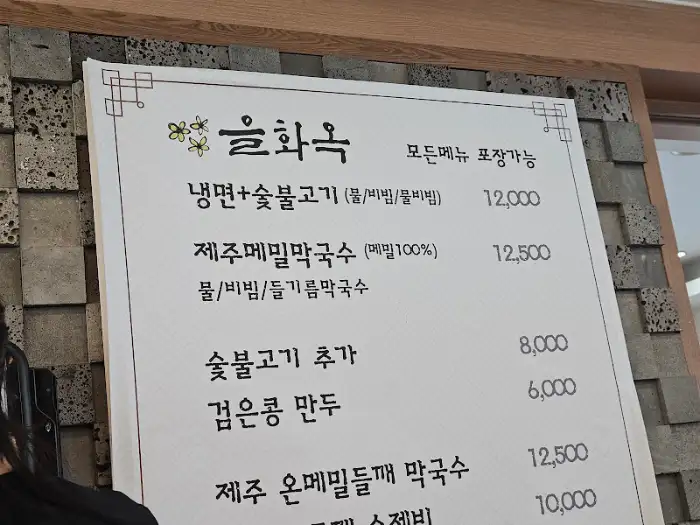 을화옥
모든메뉴 포장가능
냉면+숯불고기 (물/비빔/물비빔) 12,000
제주메밀막국수 (메밀100%) 12,500
물/비빔/들기름막국수
숯불고기 추가 8,000
검은콩 만두 6,000
제주 온메밀들깨 막국수 12,500
수제비 10,000